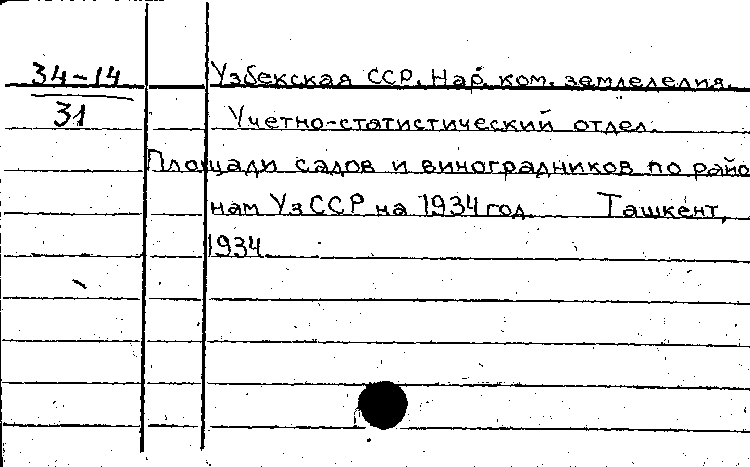 34-14
31
Узбекская ССР. Нар. ком. земледелия.
Учетно-статистический отдел.
Площади садов и виноградников по райо
нам УзССР на 1934 год. Ташкент,
1934